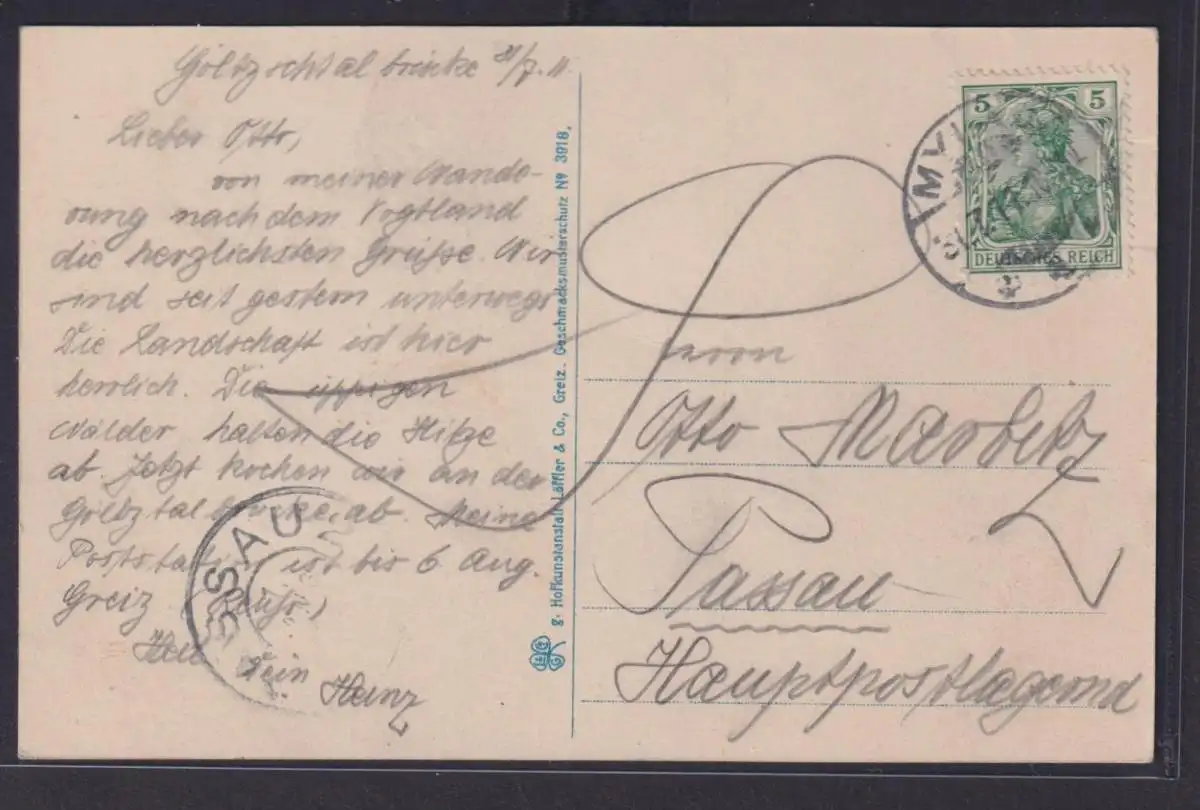 Göltzschtalbrücke 31/7.11.
Lieber Otto,
von meiner Wande-
rung nach dem Vogtland
die herzlichsten Grüsse. Wir
sind seit gestern unterwegs
Die Landschaft ist hier
herrlich. Die üppigen
Wälder halten die Hitze
ab. Jetzt kochen wir an der
ab. Meine
Poststation ist bis 6 Aug.
Greiz (Reuss.)
Dein
Heinz
8. Hofkunstanstalt Löffler & Co., Greiz. Geschmacksmusterschutz No 3918.
5 5
DEUTSCHES REICH
MYL
31.7.11
SSAU
Herrn
Otto Marbetz
Passau
Hauptpostlagernd